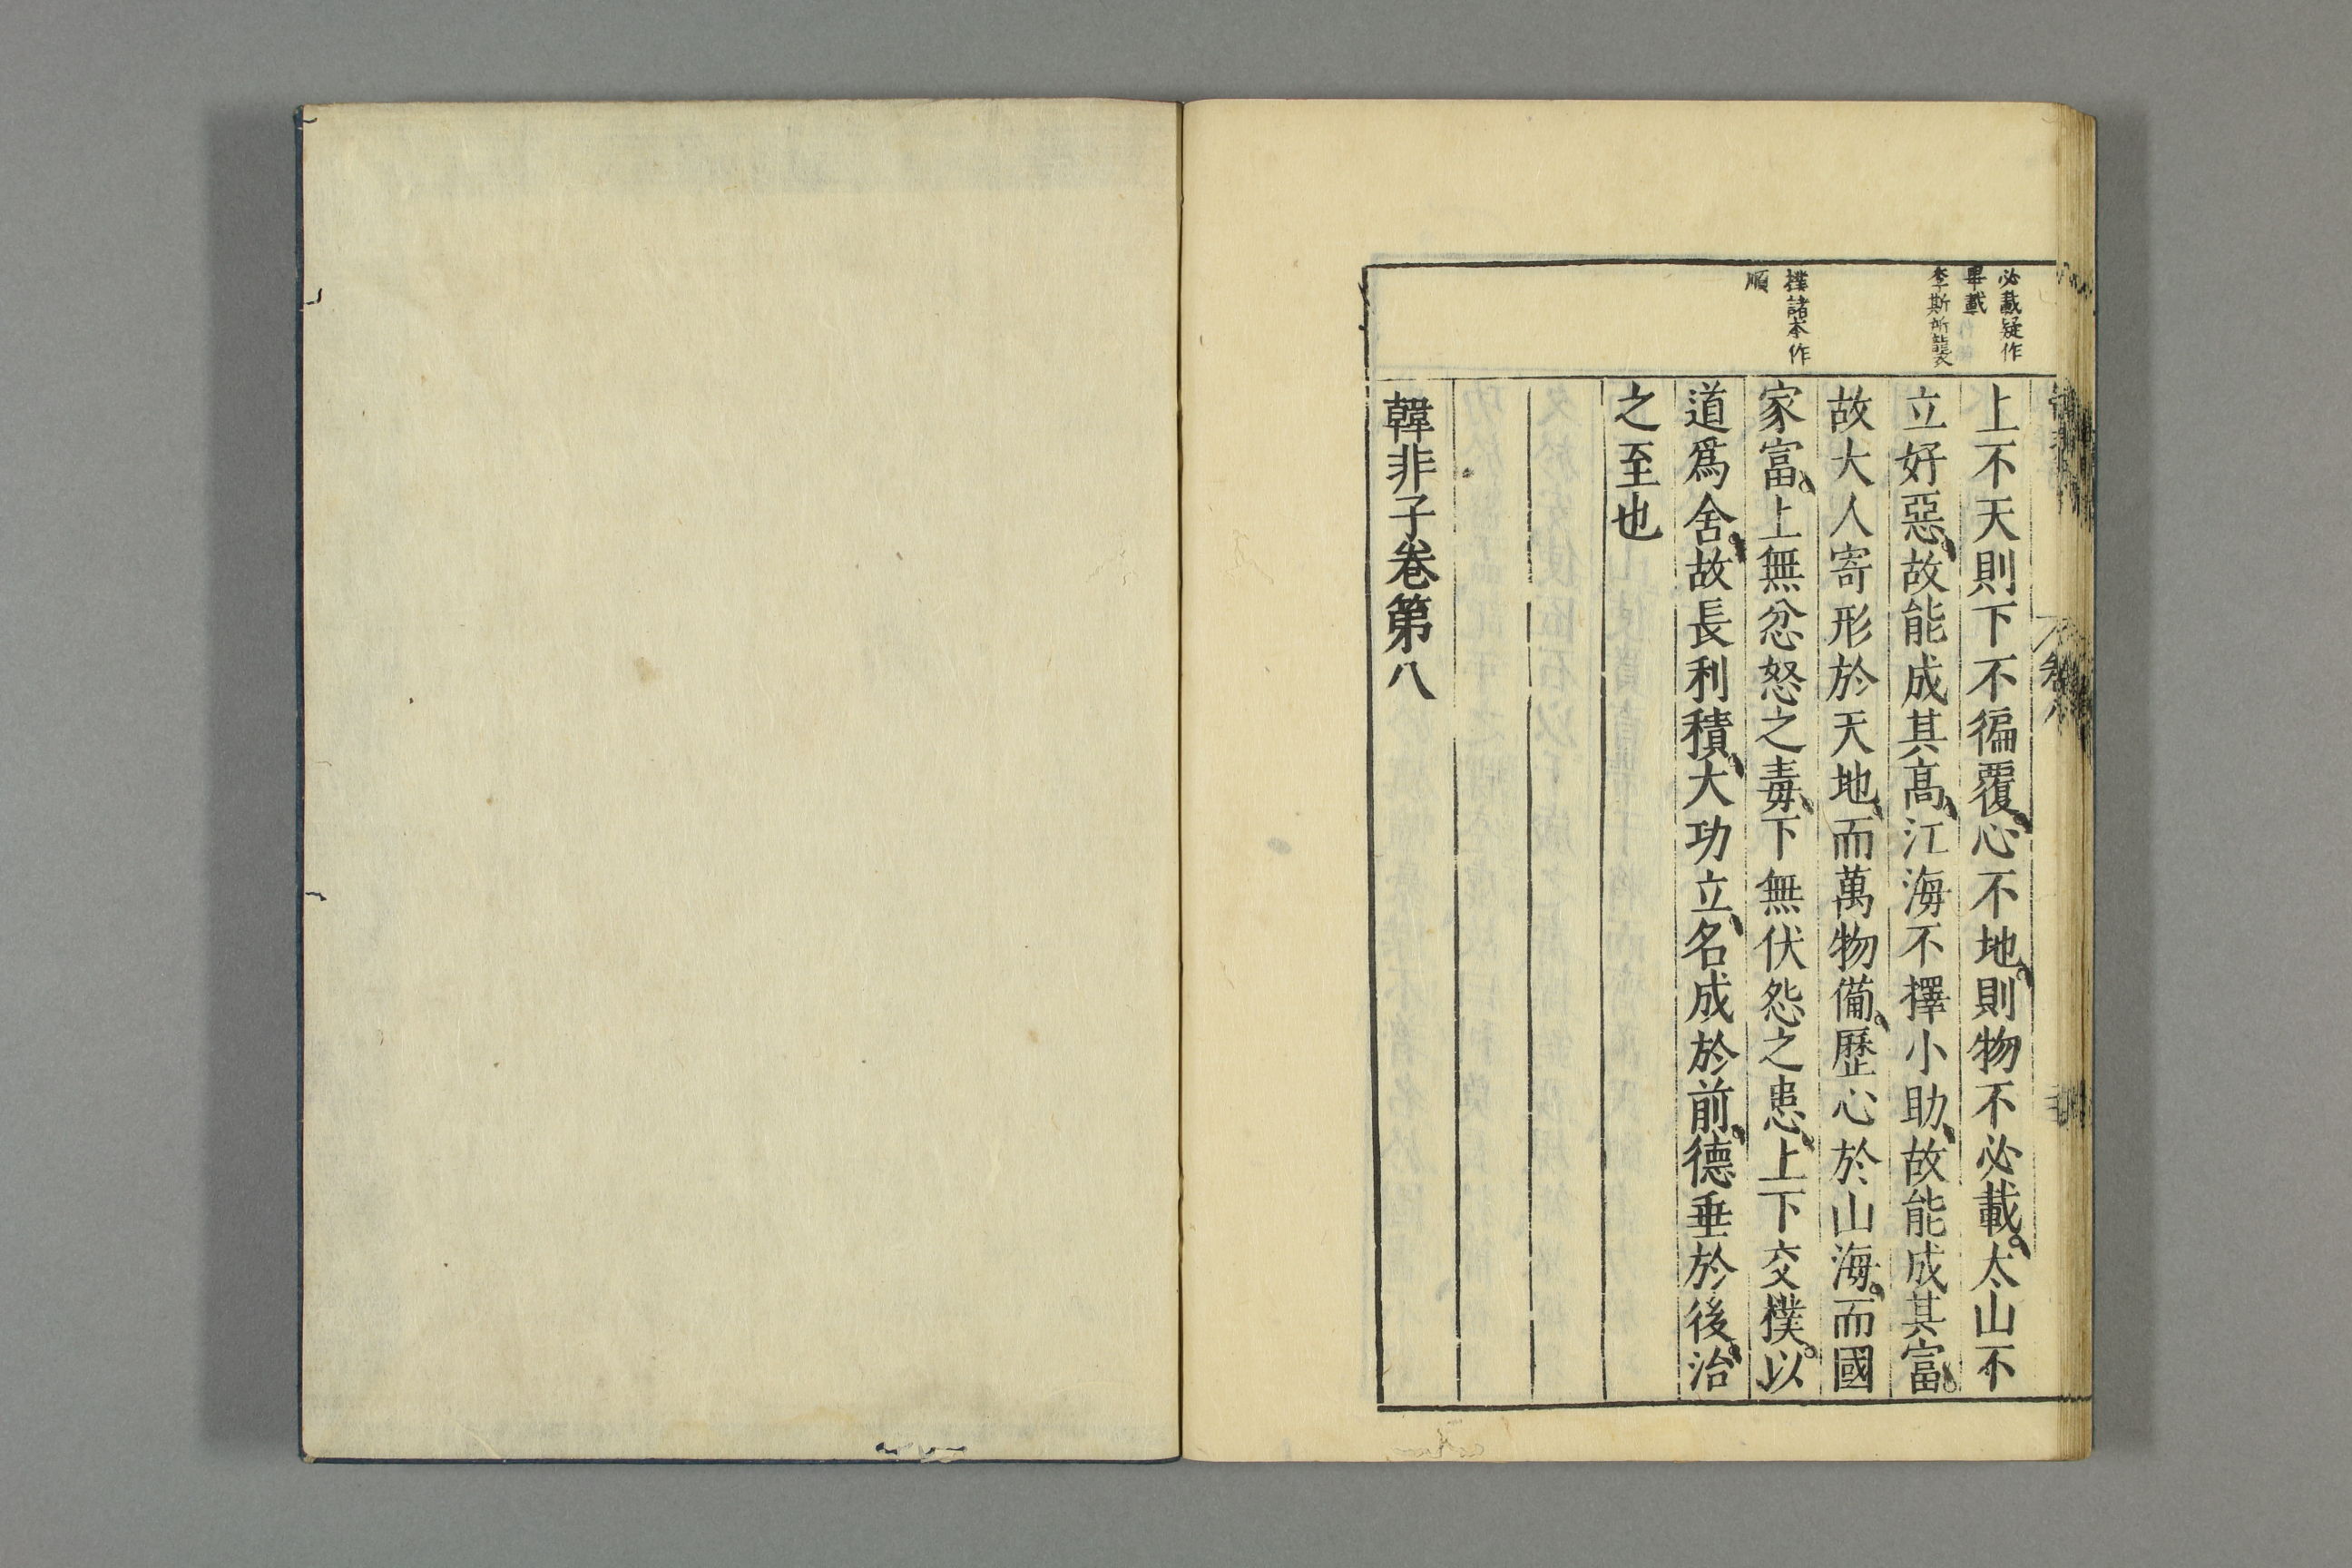 必載疑作
畢載
李斯所襲
撲諸本作
順
上不天則下不徧覆心不地則物不必載太山不
立好惡故能成其高江海不擇小助故能成其富
故大人寄形於天地而萬物備歷心於山海而國
家富上無忿怒之毒下無伏怨之患上下交撲以
道爲舍故長利積大功立名成於前德垂於後治
之至也
韓非子卷第八